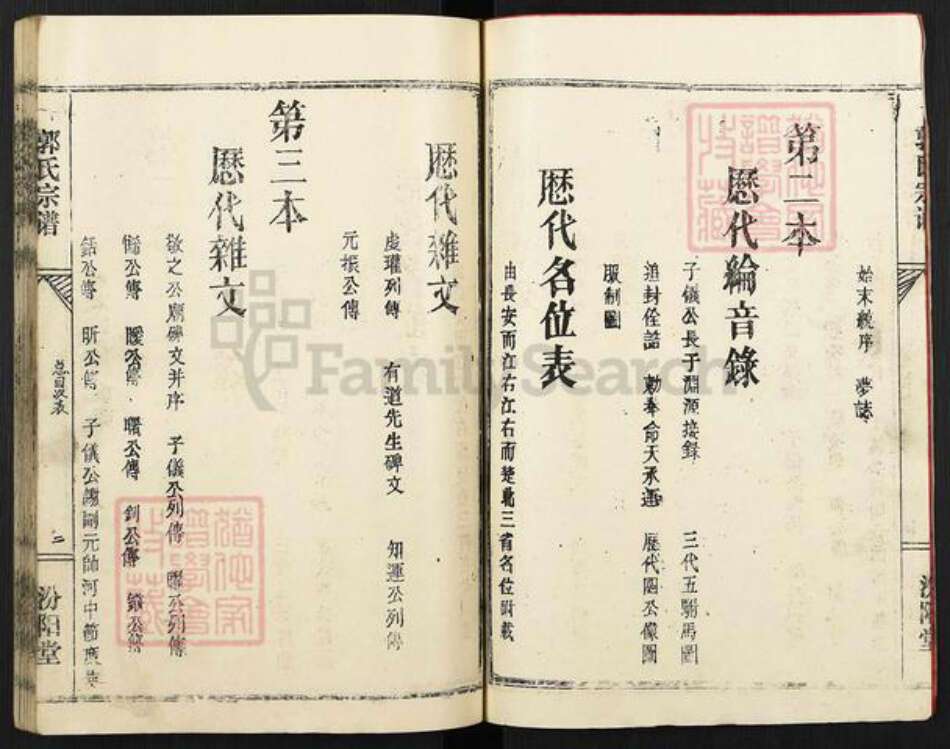 郭氏宗谱
汾阳堂
始末統序 夢誌
第二本
歷代綸音錄
子儀公長子淵源接錄 三代五駙馬圖
追封侄誥 勅奉命天承運 歷代國公像圖
服制圖
歷代名位表
由長安而江右江右而楚北三省名位附載
歷代雜文
虔瓘列傳 有道先生碑文 知運公列傳
元振公傳
第三本
歷代雜文
敬之公廟碑文并序 子儀公列傳 曜公列傳
晞公傳 曖公傳 曙公傳 釗公傳 鏦公傳
銛公傳 昕公傳 子儀公謝副元帥河中節度使
郭氏宗谱
总目次表
二
汾阳堂
FamilySearch